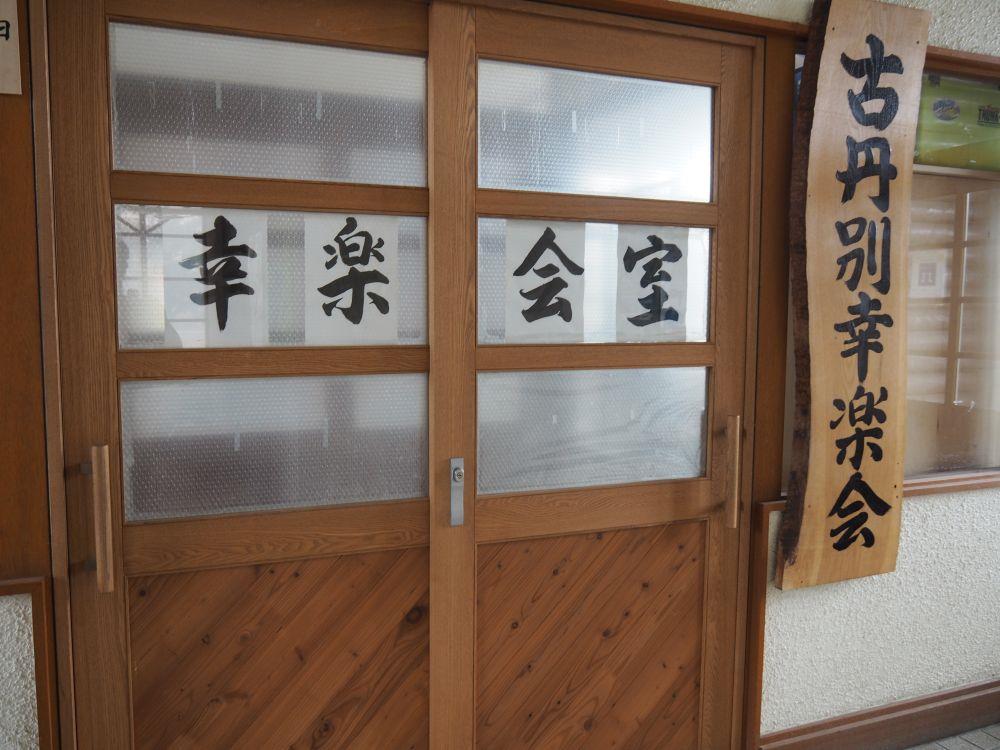 幸楽会室
古丹別幸楽会